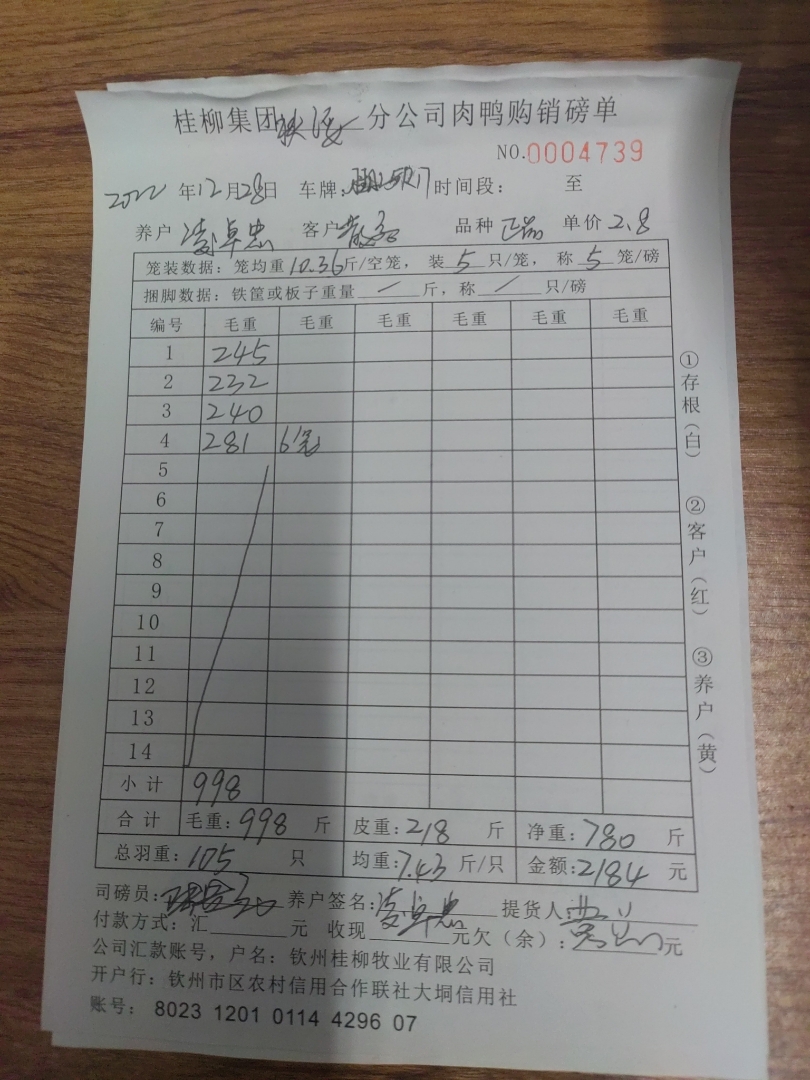 桂柳集团 分公司肉鸭购销磅单
NO.0004739
2022年12月28日 车牌: 时间段: 至
养户 凌卓忠 客户 品种 正品 单价 2.8
笼装数据: 笼均重10.36斤/空笼, 装5只/笼, 称5笼/磅
捆脚数据: 铁筐或板子重量/斤, 称/只/磅
编号 毛重 毛重 毛重 毛重 毛重 毛重
1 245
2 232
3 240
4 281 6笼
5
6
7
8
9
10
11
12
13
14
小计 998
合计 毛重: 998 斤 皮重: 218 斤 净重: 780 斤
总羽重: 105 只 均重: 7.43 斤/只 金额: 2184 元
司磅员: 养户签名: 凌卓忠 提货人
付款方式: 汇 元 收现 元欠(余): 元
公司汇款账号, 户名: 钦州桂柳牧业有限公司
开户行: 钦州市区农村信用合作联社大垌信用社
账号: 8023 1201 0114 4296 07
①存根(白)
②客户(红)
③养户(黄)